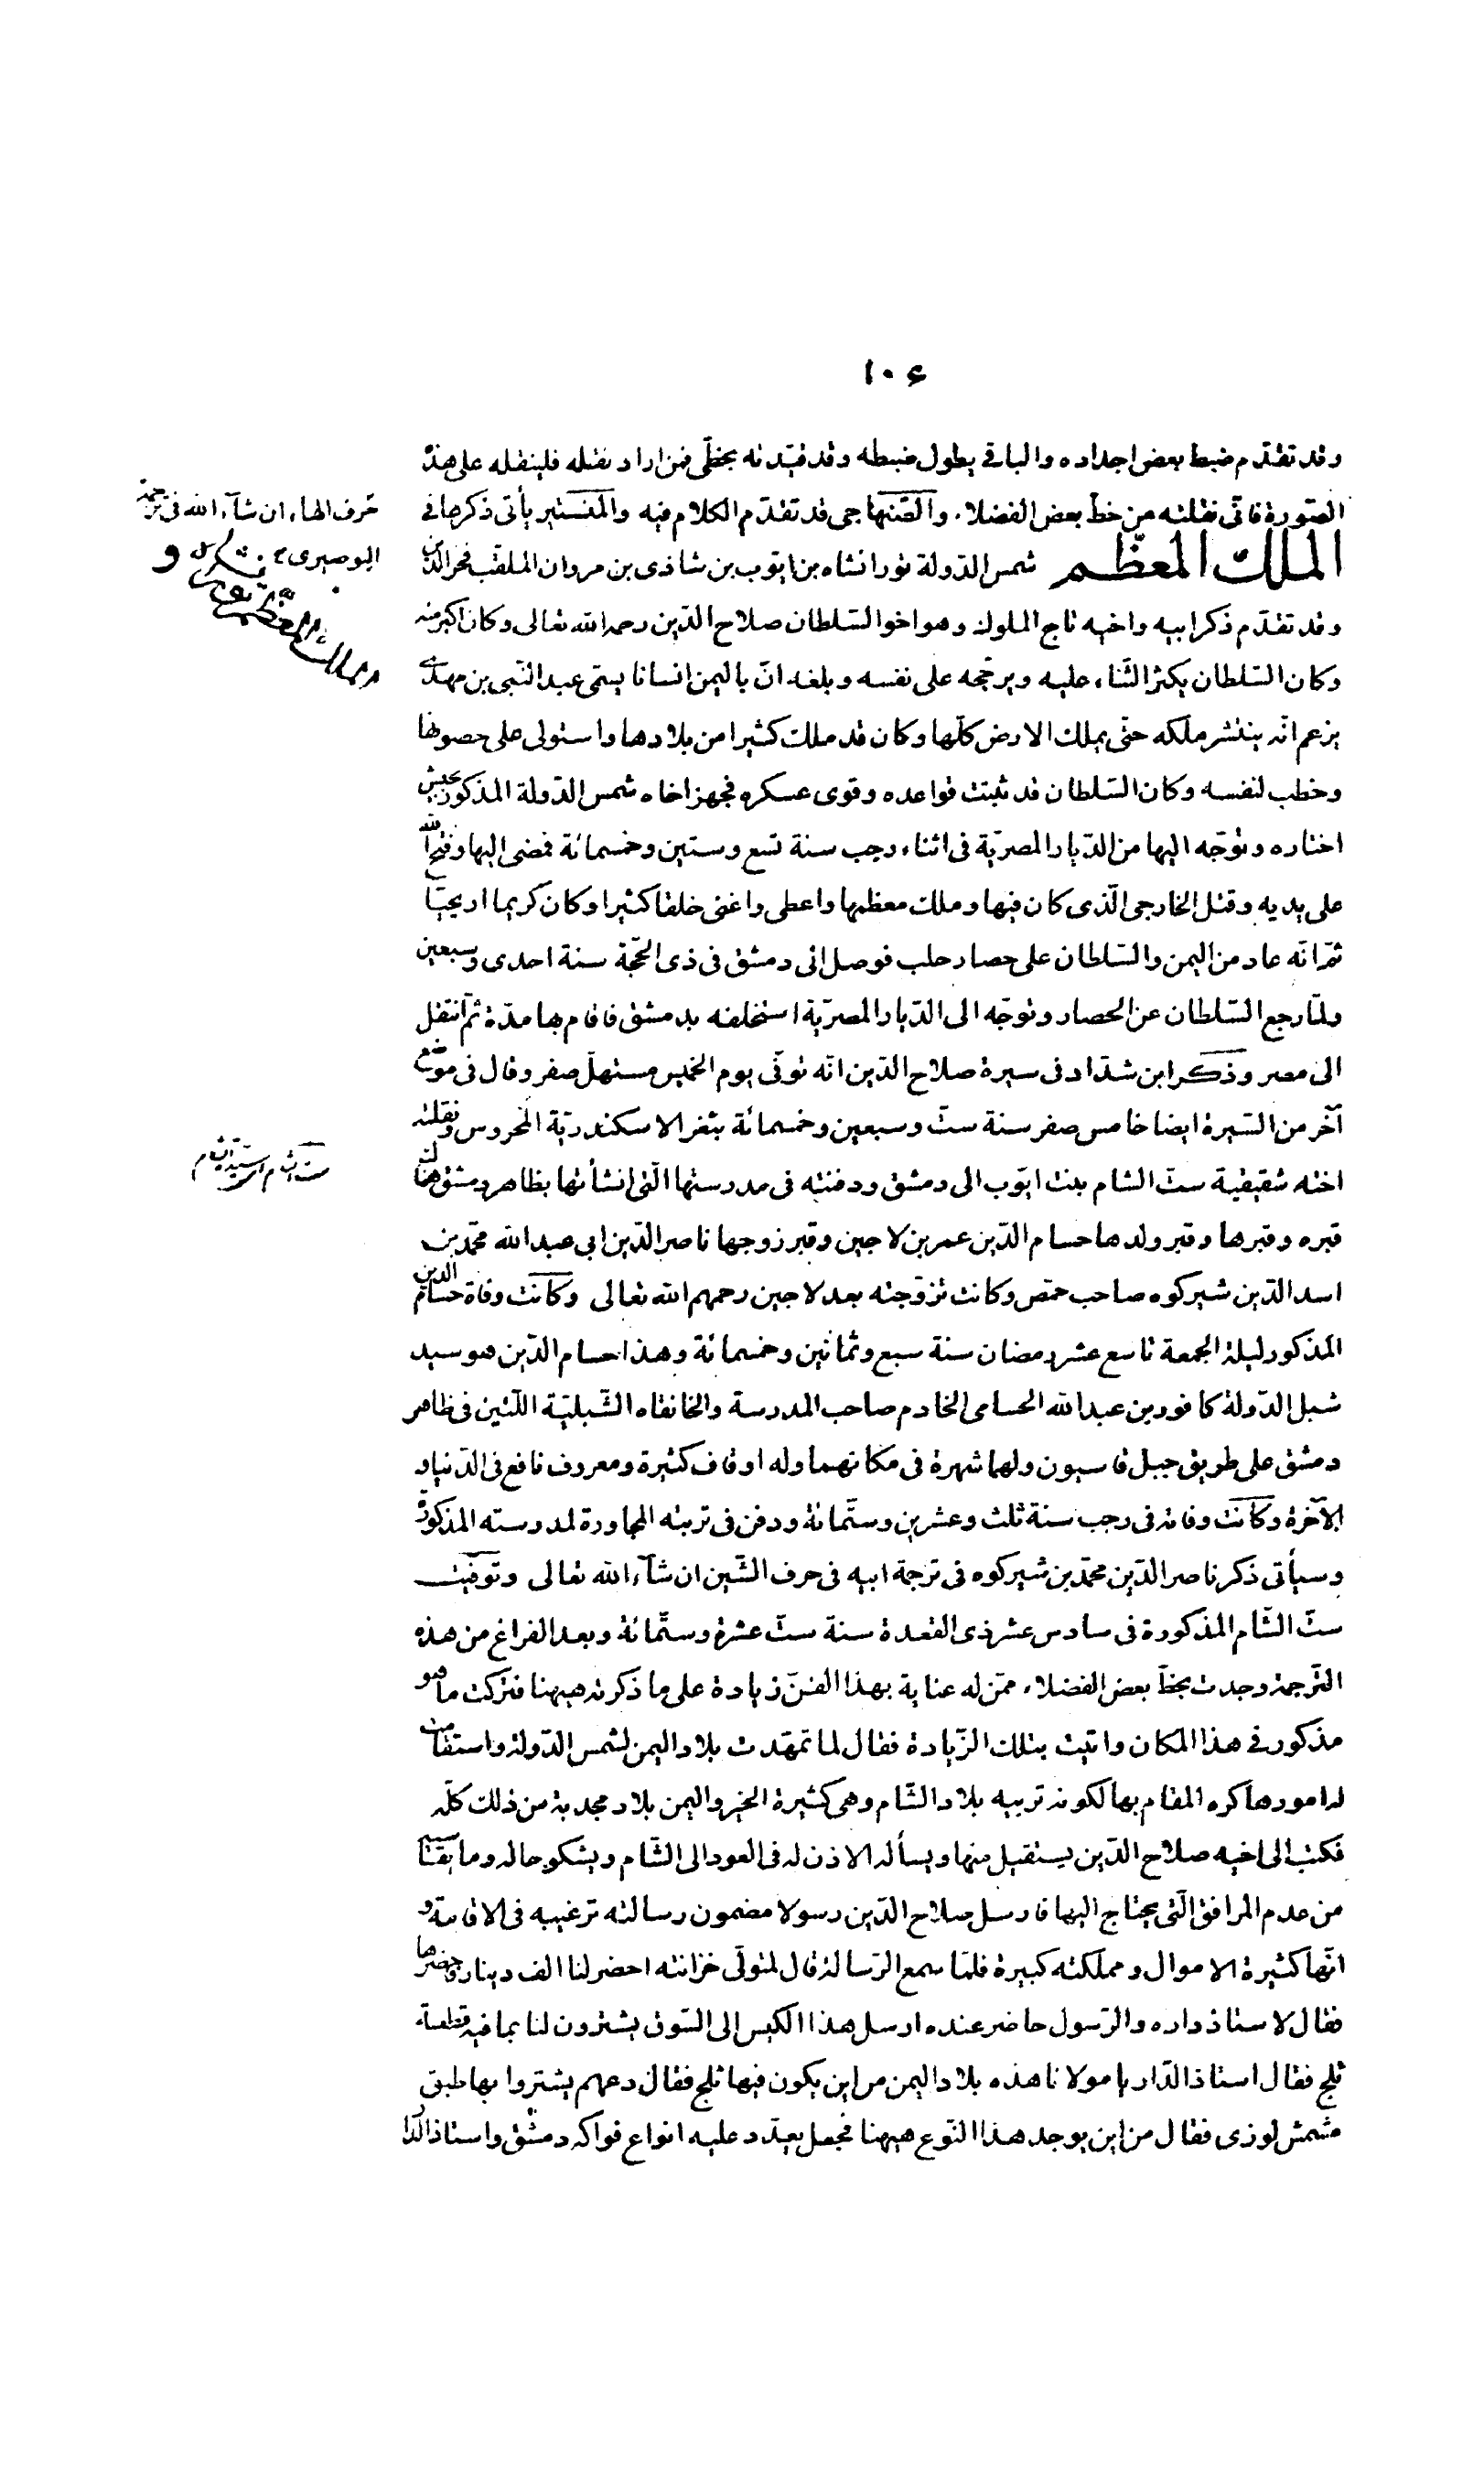 ١٠٤
وقد تقدّم ضبط بعض اجداده والباقى يطول ضبطه وقد قيّدته بخطّى فمن اراد نقله فلينقله على هذه
الصّورة فانّى نقلته من خطّ بعض الفضلاء والصّنهاجى قد تقدّم الكلام فيه والمنستير يأتى ذكرها فى
حرف الهاء ان شآء الله فى ترجمة
البوصيرى
الملك المعظّم شمس الدّولة تورانشاه بن ايّوب بن شاذى بن مروان الملقّب فخر الدّين
وقد تقدّم ذكر ابيه واخيه تاج الملوك وهو اخو السّلطان صلاح الدّين رحمه الله تعالى وكان اكبر منه
وكان السّلطان يكثر الثّناء عليه ويرجّحه على نفسه وبلغه انّ باليمن انسانا يسمّى عبد النّبى بن مهدى
يزعم انّه ينتشر ملكه حتّى يملك الارض كلّها وكان قد ملك كثيرا من بلادها واستولى على حصونها
وخطب لنفسه وكان السّلطان قد ثبتت قواعده وقوى عسكره فجهز اخاه شمس الدّولة المذكور بجيش
اختاره وتوجّه اليها من الدّيار المصريّة فى اثناء رجب سنة تسع وستين وخمسمائة فمضى اليها وفتح الله
على يديه وقتل الخارجى الّذى كان فيها وملك معظمها واعطى واغنى خلقا كثيرا وكان كريما اريحيّا
ثمّ انّه عاد من اليمن والسّلطان على حصار حلب فوصل الى دمشق فى ذى الحجّة سنة احدى وسبعين
ولمّا رجع السّلطان عن الحصار وتوجّه الى الدّيار المصريّة استخلفه بدمشق فاقام بها مدّة ثمّ انتقل
الى مصر وذكر ابن شدّاد فى سيرة صلاح الدّين انّه توفّى يوم الخميس مستهلّ صفر وقال فى موضع
آخر من السّيرة ايضا خامس صفر سنة ستّ وسبعين وخمسمائة بثغر الاسكندريّة المحروس ونقلته
اخته شقيقية ستّ الشام بنت ايّوب الى دمشق ودفنته فى مدرستها الّتى انشأتها بظاهر دمشق هناك
قبره وقبرها وقبر ولدها حسام الدّين عمر بن لاجين وقبر زوجها ناصر الدّين ابى عبد الله محمّد بن
اسد الدّين شيركوه صاحب حمص وكانت تزوّجته بعد لاجين رحمهم الله تعالى وكانت وفاة حسام الدين
المذكور ليلة الجمعة تاسع عشر رمضان سنة سبع وثمانين وخمسمائة وهذا حسام الدّين هو سيد
شبل الدّولة كافور بن عبد الله الحسامى الخادم صاحب المدرسة والخانقاه الشّبليّة اللّتين فى ظاهر
دمشق على طريق جبل قاسيون ولهما شهرة فى مكانهما وله اوقاف كثيرة ومعروف نافع فى الدّنيا و
الآخرة وكانت وفاته فى رجب سنة ثلث وعشرين وستّمائة ودفن فى تربته المجاورة لمدرسته المذكورة
وسيأتى ذكر ناصر الدّين محمّد بن شيركوه فى ترجمة ابيه فى حرف الشّين ان شآء الله تعالى وتوفّيت
ستّ الشّام المذكورة فى سادس عشر ذى القعدة سنة ستّ عشرة وستّمائة وبعد الفراغ من هذه
التّرجمة وجدت بخطّ بعض الفضلاء ممّن له عناية بهذا الفنّ زيادة على ما ذكرته ههنا فتركت ما هو
مذكور فى هذا المكان واتيت بتلك الزّيادة فقال لما تمهّدت بلاد اليمن لشمس الدّولة واستقامت
له امورها كره المقام بها لكونه تربيه بلاد الشّام وهى كثيرة الخير واليمن بلاد مجدبة من ذلك كلّه
فكتب الى اخيه صلاح الدّين يستقيل منها ويسأله الاذن له فى العود الى الشّام ويشكو حاله وما يقاسيه
من عدم المرافق الّتى يحتاج اليها فارسل صلاح الدّين رسولا مضمون رسالته ترغيبه فى الاقامة و
انّها كثيرة الاموال ومملكته كبيرة فلمّا سمع الرّسالة قال لمتولّى خزانته احضر لنا الف دينار فاحضرها
فقال لاستاذ داره والرّسول حاضر عنده ارسل هذا الكيس الى السّوق يشترون لنا بما فيه قطعة
ثلج فقال استاذ الدّار يا مولانا هذه بلاد اليمن من اين يكون فيها ثلج فقال دعهم يشتروا بها طبق
مشمش لوزى فقال من اين يوجد هذا النّوع ههنا فجعل يعدّد عليه انواع فواكه دمشق واستاذ الدّار